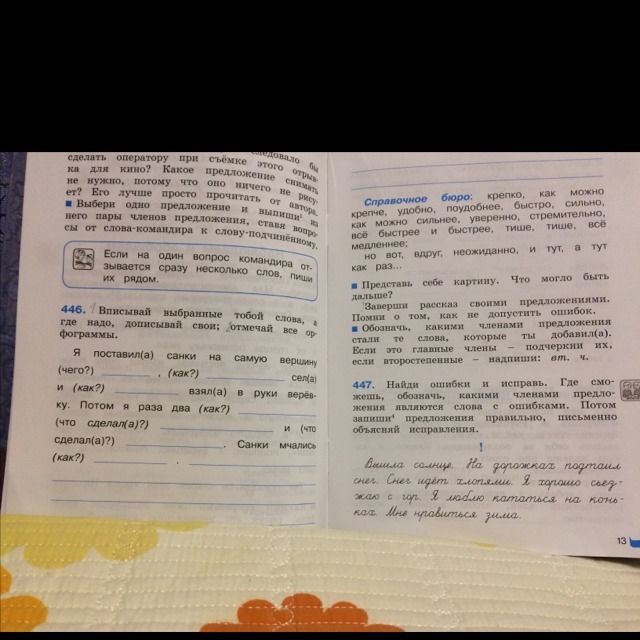 сделать оператору при съёмке этого отрыв-
ка для кино? Какое предложение снимать
не нужно, потому что оно ничего не рису-
ет? Его лучше просто прочитать от автора.
Выбери одно предложение и выпиши из
него пары членов предложения, ставя вопро-
сы от слова-командира к слову-подчинённому.
Если на один вопрос командира от-
зывается сразу несколько слов, пиши
их рядом.
446. Вписывай выбранные тобой слова, а
где надо, дописывай свои; отмечай все ор-
фограммы.
Я поставил(а) санки на самую вершину
(чего?) , (как?) сел(а)
и (как?) взял(а) в руки верёв-
ку. Потом я раза два (как?)
(что сделал(а)?) и (что
сделал(а)?) . Санки мчались
(как?) .
Справочное бюро: крепко, как можно
крепче, удобно, поудобнее, быстро, сильно,
как можно сильнее, уверенно, стремительно,
всё быстрее и быстрее, тише, тише, всё
медленнее;
но вот, вдруг, неожиданно, и тут, а тут
как раз...
Представь себе картину. Что могло быть
дальше?
Заверши рассказ своими предложениями.
Помни о том, как не допустить ошибок.
Обозначь, какими членами предложения
стали те слова, которые ты добавил(а).
Если это главные члены – подчеркни их,
если второстепенные – надпиши: вт. ч.
447. Найди ошибки и исправь. Где смо-
жешь, обозначь, какими членами предло-
жения являются слова с ошибками. Потом
запиши⁴ предложения правильно, письменно
объясняй исправления.
!
Вышла солнце. На дорожках подтаил
снег. Снег идёт хлопями. Я хорошо сьез-
жаю с гор. Я люблю кататься на конь-
ках. Мне нравиться зима.
13